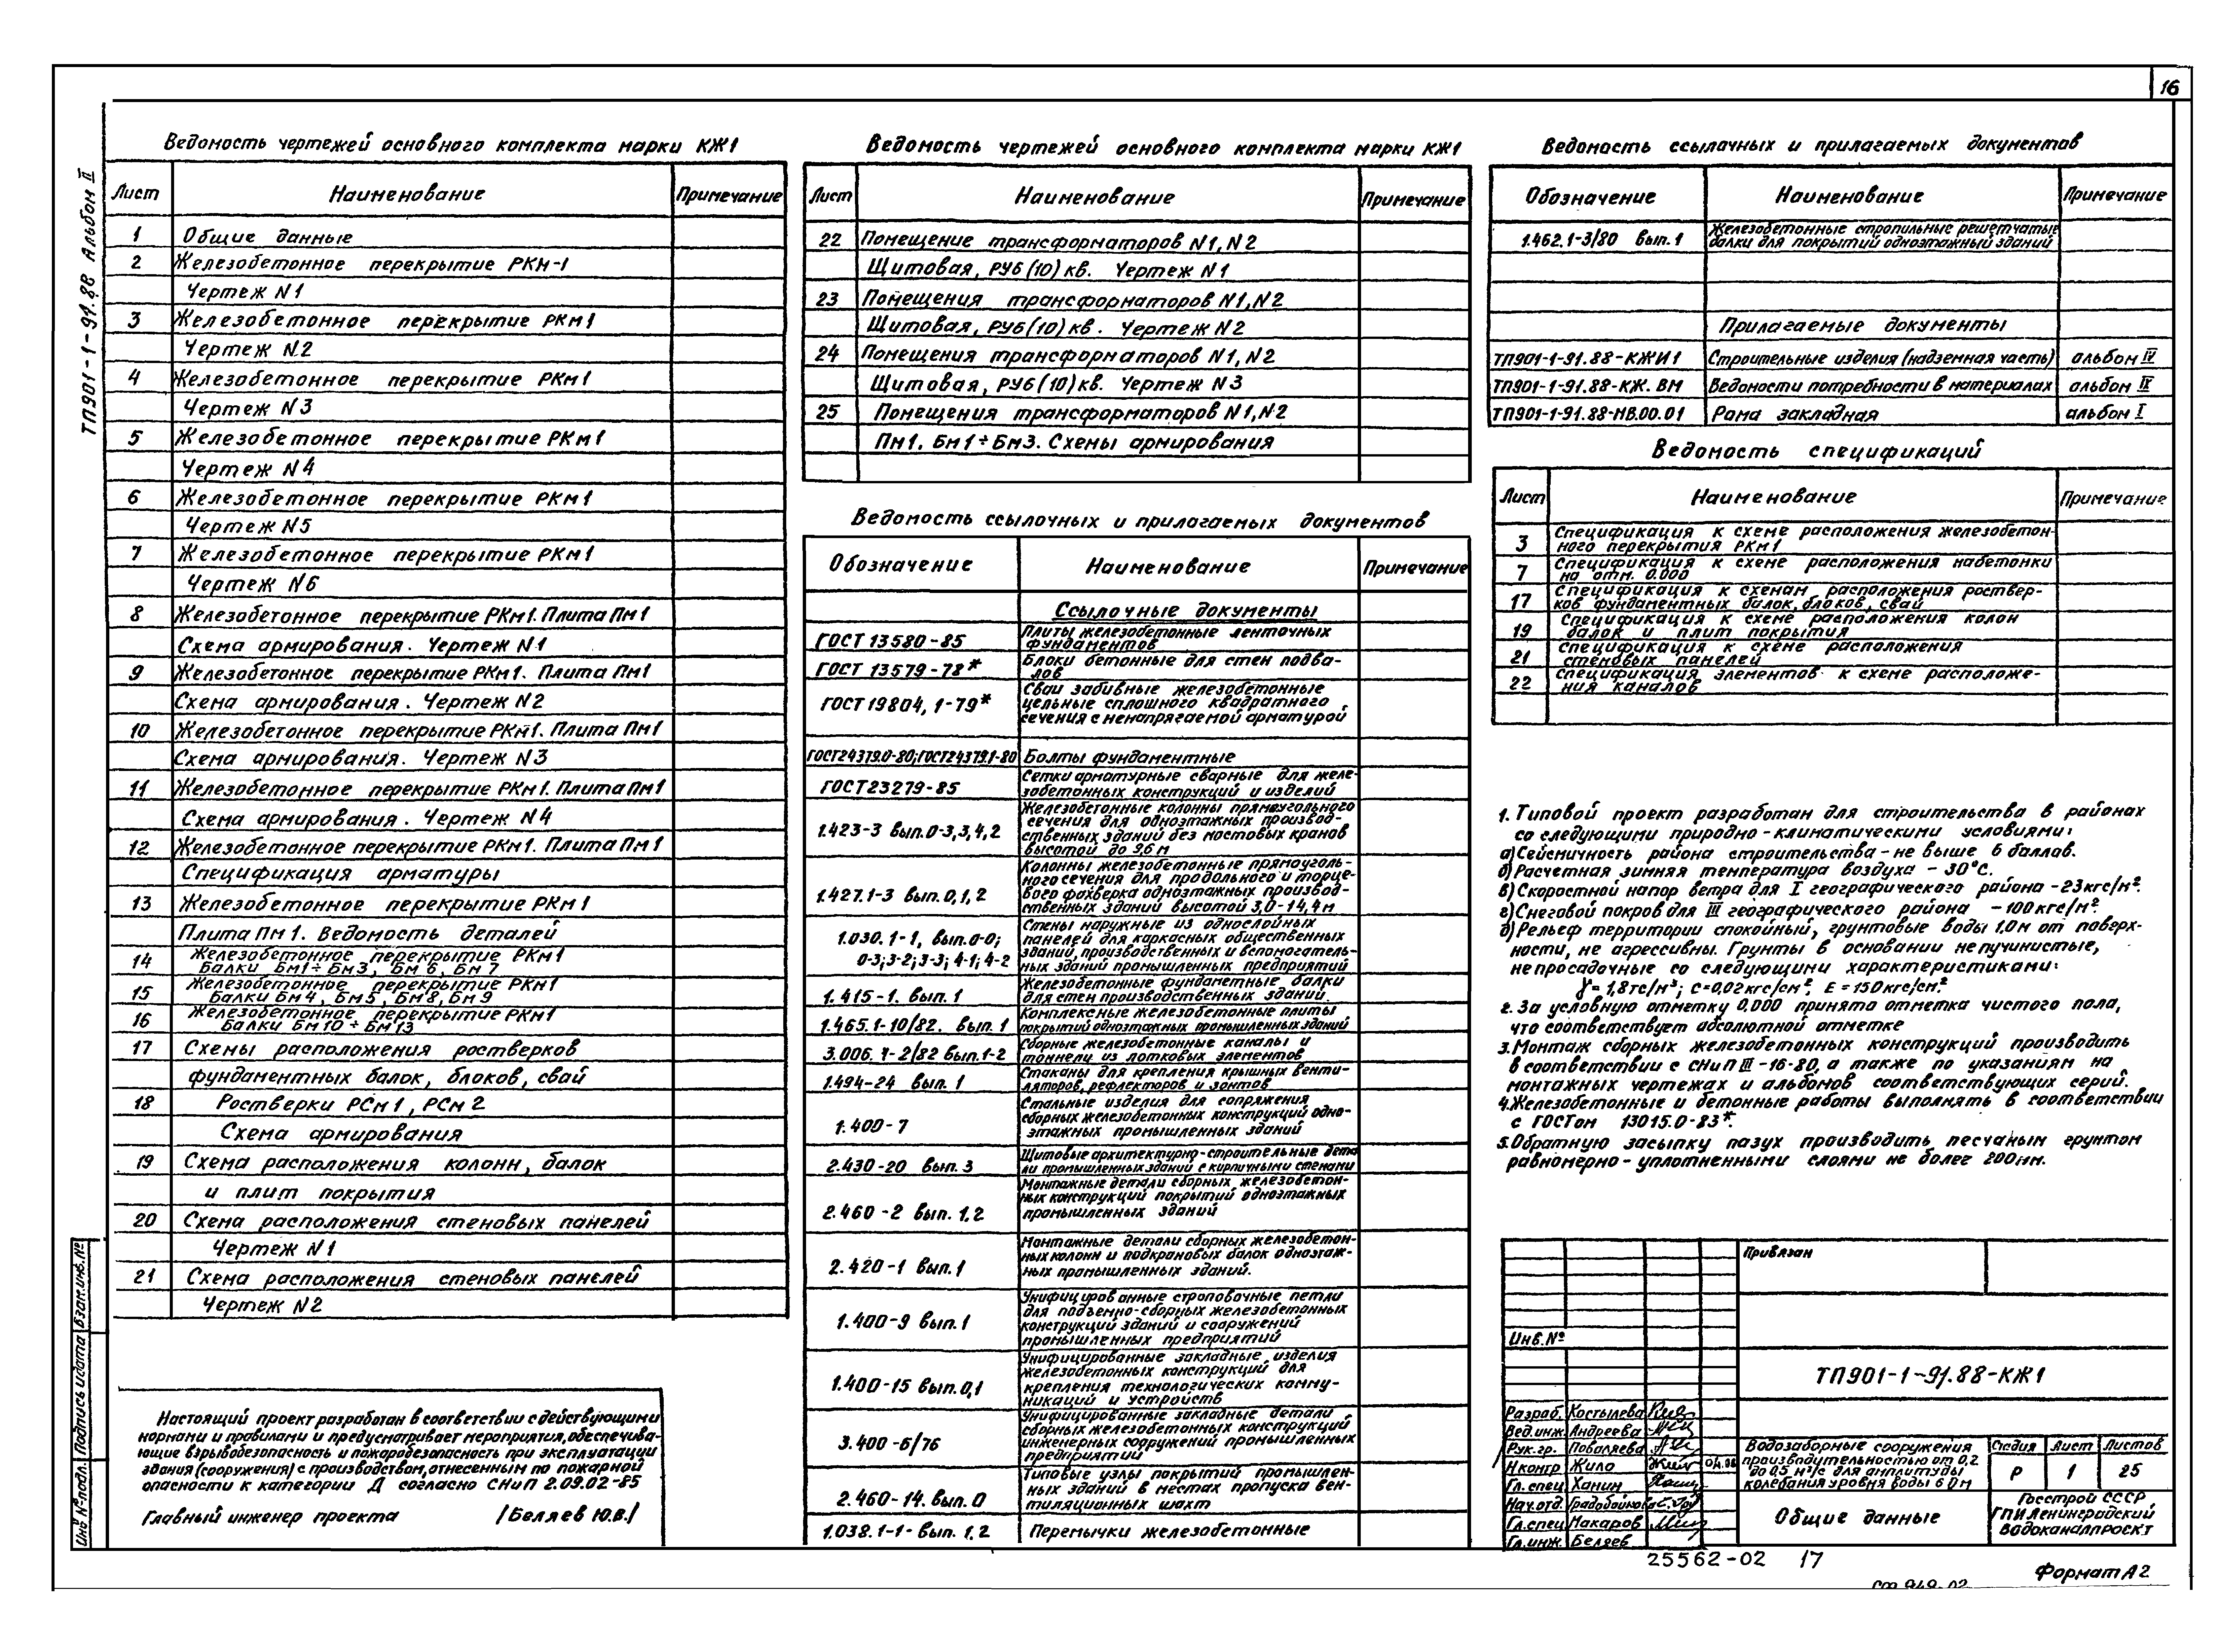 16
ТП901-1-91.88 Альбом II
Ведомость чертежей основного комплекта марки КЖ1
Лист Наименование Примечание
1 Общие данные
2 Железобетонное перекрытие РКм-1
Чертеж N1
3 Железобетонное перекрытие РКм1
Чертеж N2
4 Железобетонное перекрытие РКм1
Чертеж N3
5 Железобетонное перекрытие РКм1
Чертеж N4
6 Железобетонное перекрытие РКм1
Чертеж N5
7 Железобетонное перекрытие РКм1
Чертеж N6
8 Железобетонное перекрытие РКм1. Плита Пм1
Схема армирования. Чертеж N1
9 Железобетонное перекрытие РКм1. Плита Пм1
Схема армирования. Чертеж N2
10 Железобетонное перекрытие РКм1. Плита Пм1
Схема армирования. Чертеж N3
11 Железобетонное перекрытие РКм1. Плита Пм1
Схема армирования. Чертеж N4
12 Железобетонное перекрытие РКм1. Плита Пм1
Спецификация арматуры
13 Железобетонное перекрытие РКм1
Плита Пм1. Ведомость деталей
14 Железобетонное перекрытие РКм1
Балки Бм1÷Бм3, Бм6, Бм7
15 Железобетонное перекрытие РКм1
Балки Бм4, Бм5, Бм8, Бм9
16 Железобетонное перекрытие РКм1
Балки Бм10÷Бм13
17 Схемы расположения ростверков
фундаментных балок, блоков, свай
18 Ростверки РСм1, РСм2
Схема армирования
19 Схема расположения колонн, балок
и плит покрытия
20 Схема расположения стеновых панелей
Чертеж N1
21 Схема расположения стеновых панелей
Чертеж N2
Настоящий проект разработан в соответствии с действующими
нормами и правилами и предусматривает мероприятия, обеспечива-
ющие взрывобезопасность и пожаробезопасность при эксплуатации
здания (сооружения) с производством, отнесенным по пожарной
опасности к категории Д согласно СНиП 2.09.02-85
Главный инженер проекта /Беляев Ю.В./
Инв.№подл. Подпись и дата Взам.инв.№
Ведомость чертежей основного комплекта марки КЖ1
Лист Наименование Примечание
22 Помещение трансформаторов N1, N2
Щитовая, РУ6(10) кв. Чертеж N1
23 Помещения трансформаторов N1, N2
Щитовая, РУ6(10) кв. Чертеж N2
24 Помещения трансформаторов N1, N2
Щитовая, РУ6(10) кв. Чертеж N3
25 Помещения трансформаторов N1, N2
Пм1. Бм1÷Бм3. Схемы армирования
Ведомость ссылочных и прилагаемых документов
Обозначение Наименование Примечание
Ссылочные документы
ГОСТ 13580-85 Плиты железобетонные ленточных
фундаментов
ГОСТ 13579-78* Блоки бетонные для стен подва-
лов
ГОСТ 19804, 1-79* Сваи забивные железобетонные
цельные сплошного квадратного
сечения с ненапрягаемой арматурой
ГОСТ24379.0-80; ГОСТ24379.1-80 Болты фундаментные
ГОСТ23279-85 Сетки арматурные сварные для желе-
зобетонных конструкций и изделий
1.423-3 вып.0-3,3,4,2 Железобетонные колонны прямоугольного
сечения для одноэтажных производ-
ственных зданий без мостовых кранов
высотой до 9.6 м
1.427.1-3 вып. 0,1,2 Колонны железобетонные прямоуголь-
ного сечения для продольного и торце-
вого фахверка одноэтажных производ-
ственных зданий высотой 3,0-14,4 м
1.030.1-1, вып.0-0; 0-3; 3-2; 3-3; 4-1; 4-2 Стены наружные из однослойных
панелей для каркасных общественных
зданий, производственных и вспомогатель-
ных зданий промышленных предприятий
1.415-1. вып. 1 Железобетонные фундаметные балки
для стен производственных зданий
1.465.1-10/82. вып. 1 Комплексные железобетонные плиты
покрытий одноэтажных промышленных зданий
3.006.1-2/82 вып.1-2 Сборные железобетонные каналы и
тоннели из лотковых элементов
1.494-24 вып. 1 Стаканы для крепления крышных венти-
ляторов, рефлекторов и зонтов
1.400-7 Стальные изделия для сопряжения
сборных железобетонных конструкций одно-
этажных промышленных зданий
2.430-20 вып. 3 Щитовые архитектурно-строительные дета
ли промышленных зданий с кирпичными стенами
2.460-2 вып. 1.2 Монтажные детали сборных железобетон-
ных конструкций покрытий одноэтажных
промышленных зданий
2.420-1 вып.1 Монтажные детали сборных железобетон-
ных колонн и подкрановых балок одноэтаж-
ных промышленных зданий.
1.400-9 вып.1 Унифицированные строповочные петли
для подъемно-сборных железобетонных
конструкций зданий и сооружений
промышленных предприятий
1.400-15 вып.0,1 Унифицированные закладные изделия
железобетонных конструкций для
крепления технологических комму-
никаций и устройств
3.400-6/76 Унифицированные закладные детали
сборных железобетонных конструкций
инженерных сооружений промышленных
предприятий
2.460-14. вып.0 Типовые узлы покрытий промышлен-
ных зданий в местах пропуска вен-
тиляционных шахт
1.038.1-1- вып. 1.2 Перемычки железобетонные
Ведомость ссылочных и прилагаемых документов
Обозначение Наименование Примечание
1.462.1-3/80 вып. 1 Железобетонные стропильные решетчатые
балки для покрытий одноэтажный зданий
Прилагаемые документы
ТП901-1-91.88-КЖИ1 Строительные изделия (надземная часть) альбом IV
ТП901-1-91.88-КЖ. ВМ Ведомости потребности в материалах альбом IX
ТП901-1-91.88-МВ.00.01 Рама закладная альбом I
Ведомость спецификаций
Лист Наименование Примечание
3 Спецификация к схеме расположения железобетон-
ного перекрытия РКм1
7 Спецификация к схеме расположения набетонки
на отм. 0.000
17 Спецификация к схемам расположения роствер-
ков фундаментных балок, блоков, свай
19 Спецификация к схеме расположения колон
балок и плит покрытия
21 Спецификация к схеме расположения
стеновых панелей
22 Спецификация элементов к схеме расположе-
ния каналов
1. Типовой проект разработан для строительства в районах
со следующими природно-климатическими условиями:
а) Сейсмичность района строительства - не выше 6 баллов.
б) Расчетная зимняя температура воздуха - 30°С.
в) Скоростной напор ветра для I географического района - 23кгс/м².
г) Снеговой покров для III географического района - 100кгс/м².
д) Рельеф территории спокойный, грунтовые воды 1.0м от поверх-
ности, не агрессивны. Грунты в основании непучинистые,
непросадочные со следующими характеристиками:
γ = 1,8тс/м³; С=0,02кгс/см², Е = 150кгс/см².
2. За условную отметку 0.000 принята отметка чистого пола,
что соответствует абсолютной отметке
3. Монтаж сборных железобетонных конструкций производить
в соответствии с СНиП III-16-80, а также по указаниям на
монтажных чертежах и альбомов соответствующих серий.
4. Железобетонные и бетонные работы выполнять в соответствии
с ГОСТом 13015.0-83*.
5. Обратную засыпку пазух производить песчаным грунтом
равномерно-уплотненными слоями не более 200мм.
Привязан
Инв.№
ТП901-1-91.88-КЖ1
Разраб. Костылева
Вед.инж. Андреева
Рук.гр. Поваляева
Н контр Жило 04.88
Гл.спец Ханин
Нач.отд.
Гл.спец Макаров
Гл.инж. Беляев
Водозаборные сооружения
производительностью от 0,2
до 0,5 м³/с для амплитуды
колебания уровня воды 6.0м
Стадия Лист Листов
Р 1 25
Общие данные
Госстрой СССР
ГПИ Ленинградский
Водоканалпроект
25562-02 17
Формат А2